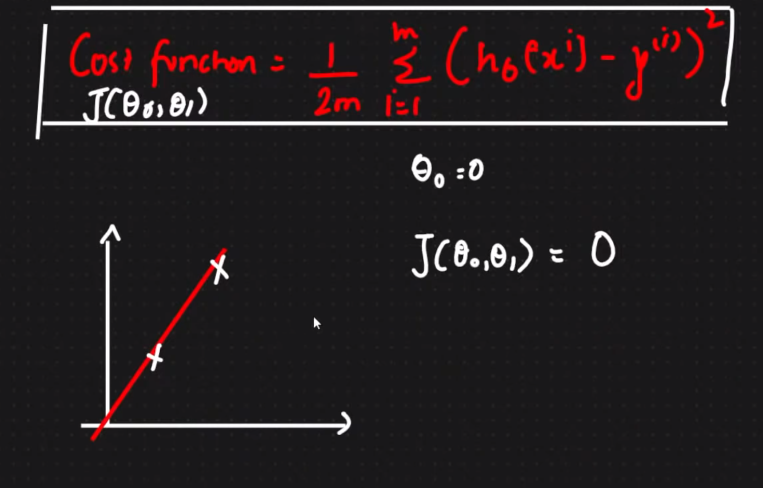 Cost function = 1/2m m Σ i=1 (hθ(xⁱ) - y⁽ⁱ⁾)²
J(θ₀,θ₁)
θ₀ = 0
J(θ₀,θ₁) = 0